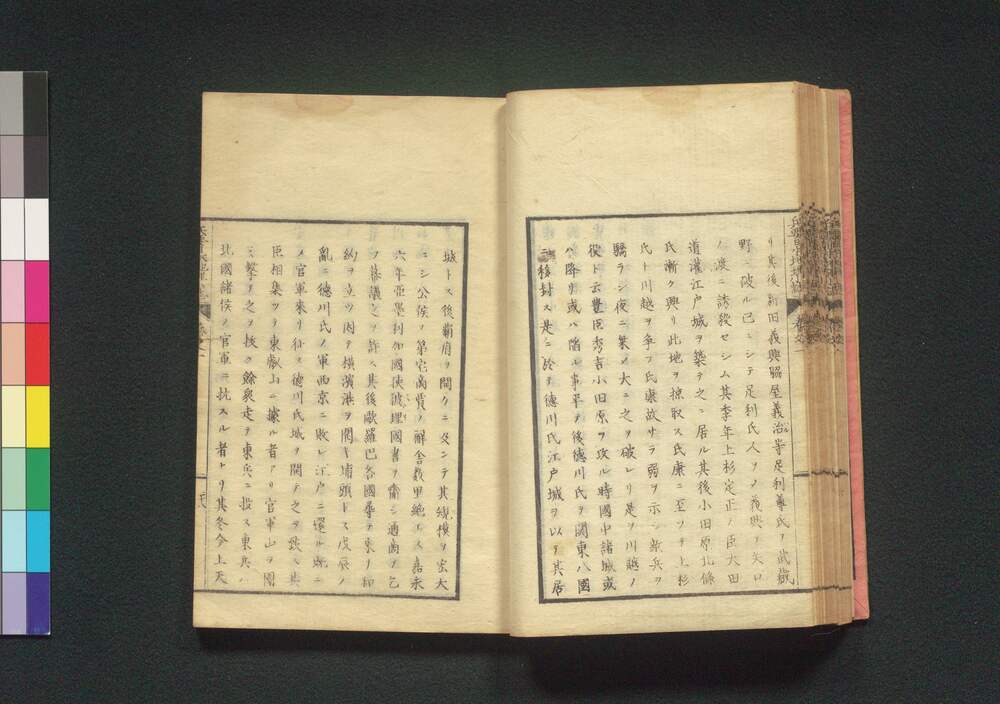 リ其後新田義興脇屋義治等足利尊氏ヲ武藏
野ニ破ル已ニシテ足利氏人ヲシテ義興ヲ矢口
ノ渡ニ誘殺セシム其季年上杉定正ノ臣大田
道灌江戸城ヲ築テ之ニ居ル其後小田原北條
氏漸ク興リ此地ヲ掠取ス氏康ニ至ツテ上杉
氏ト川越ヲ爭フ氏康故サラ弱ヲ示シ敵兵ヲ
驕ラシ夜ニ乗メ大ニ之ヲ破レリ是ヲ川越ノ
役ト云豊臣秀吉小田原ヲ攻ル時國中諸城或
ハ降リ或ハ陥ル事平テ後德川氏ヲ關東八國
ニ移封ス是ニ於テ德川氏江戸城ヲ以テ其居
城トス後覇府ヲ開クニ及ンテ其規模ヲ宏大
ニシ公侯ノ第宅商賈ノ廨舎數里絶エス嘉永
六年亞墨利加國使彼理國書ヲ齎シ通商ヲ乞
フ幕議之ヲ許ス其後歐羅巴各國尋テ來リ和
約ヲ立ツ因テ横濱港ヲ開ノ埔頭トス戊辰ノ
亂ニ德川氏ノ軍西京ニ敗レ江戸ニ還ル既ニ
メ官軍來リ征ス德川氏城ヲ開テ之ヲ致ス其
臣相集ツテ東叡山ニ據ル者アリ官軍山ヲ圍
ミ撃テ之ヲ抜ク餘衆走テ東兵ニ投ス東兵ハ
北國諸侯ノ官軍ニ抗スル者ナリ其冬今上天